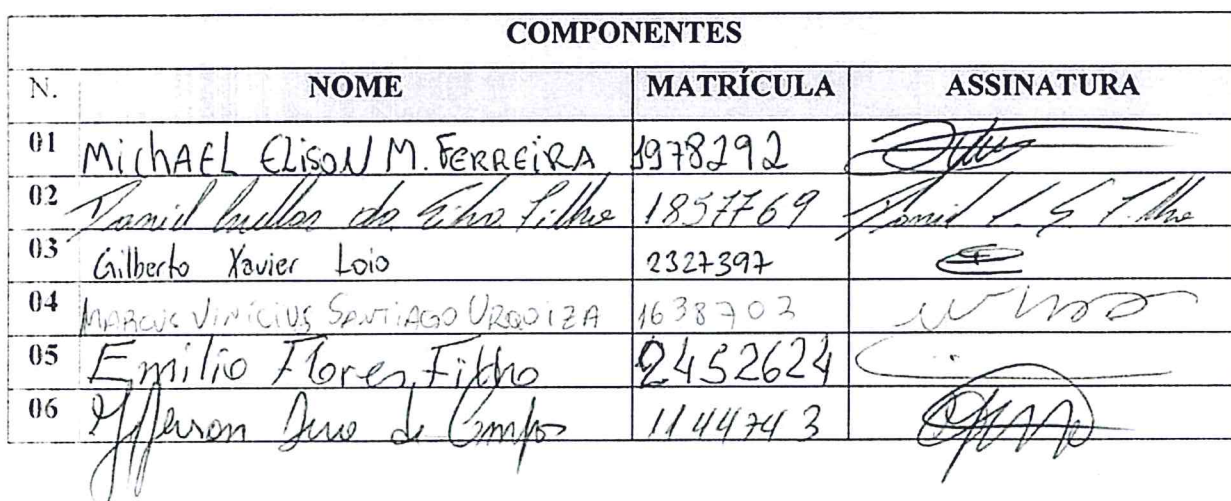 COMPONENTES
N. NOME MATRÍCULA ASSINATURA
01 MichAEL ElisON M. FERREiRA 1978292
02 Daniel da Silva Filho 1857769 Daniel
03 Gilberto Xavier Loio 2327397
04 MARCUS VINICIUS SANTIAGO URQUIZA 1638703
05 Emilio Flores Filho 2452624
06 Jefferson de Campos 1144743